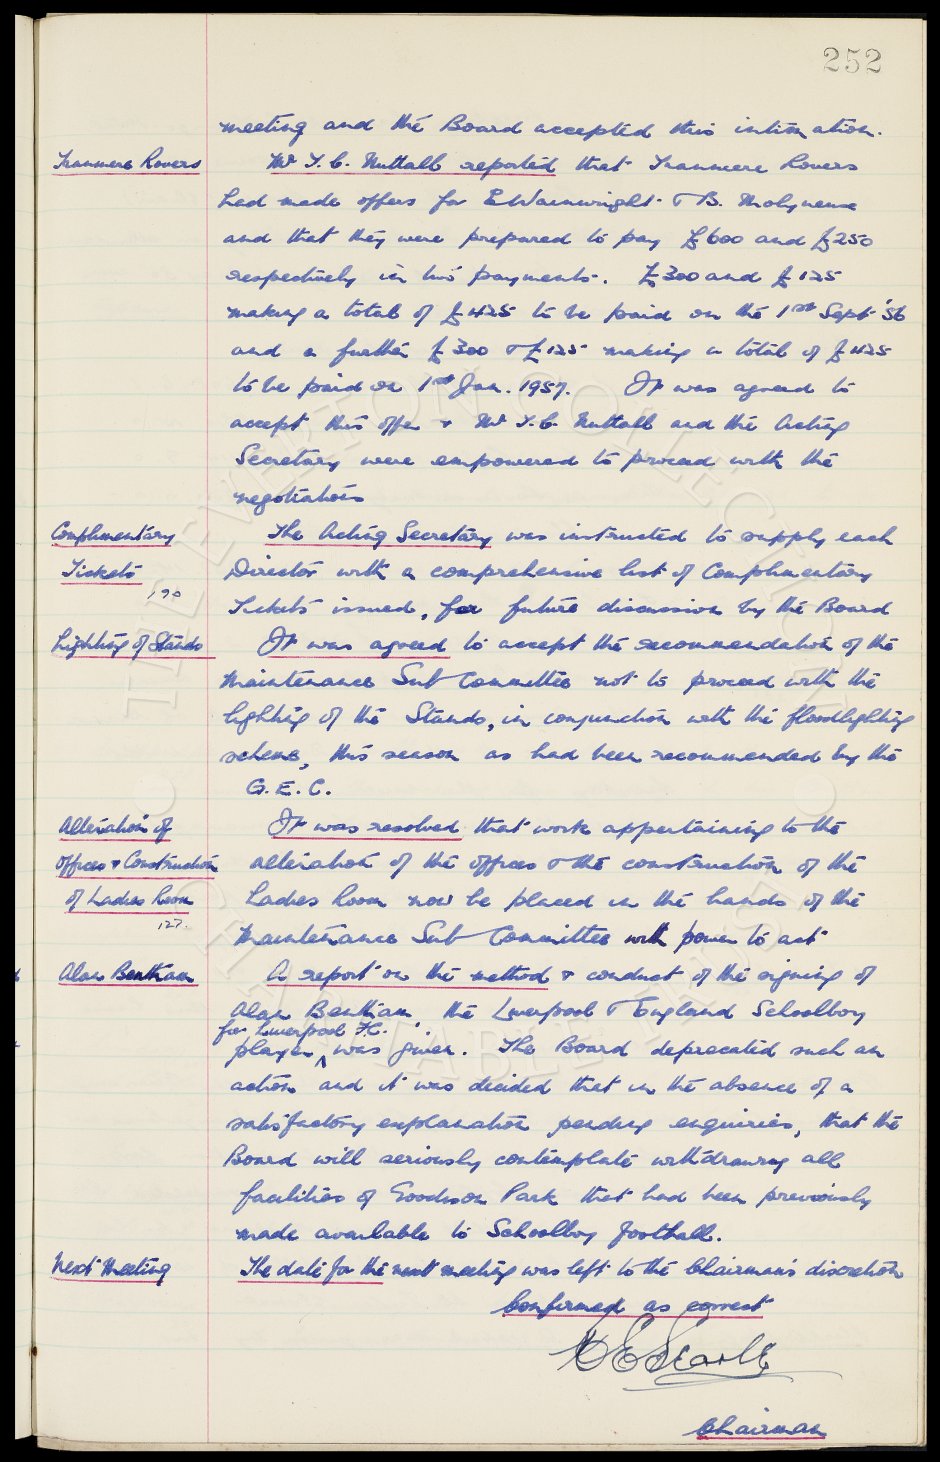 252
meeting and the Board accepted this intimation.
Tranmere Rovers
Mr T. C. Nuttall reported that Tranmere Rovers
had made offers for E Wainwright & B. Molyneux
and that they were prepared to pay £600 and £250
respectively in two payments. £300 and £125
making a total of £425 to be paid on the 1st Sept '56
and a further £300 & £125 making a total of £425
to be paid on 1st Jan. 1957. It was agreed to
accept this offer & Mr T. C. Nuttall and the Acting
Secretary were empowered to proceed with the
negotiations
Complimentary
Tickets
190
The Acting Secretary was instructed to supply each
Director with a comprehensive list of Complimentary
Tickets issued, for future discussion by the Board
Lighting of Stands
It was agreed to accept the recommendation of the
Maintenance Sub Committee not to proceed with the
lighting of the Stands, in conjunction with the floodlighting
scheme, this season as had been recommended by the
G.E.C.
Alteration of
offices & Construction
of Ladies Room
127.
It was resolved that work appertaining to the
alteration of the offices & the construction of the
Ladies Room now be placed in the hands of the
Maintenance Sub Committee with power to act
Alan Bentham
A report on the method & conduct of the signing of
Alan Bentham the Liverpool & England Schoolboy
for Liverpool F.C.
player was given. The Board deprecated such an
action and it was decided that in the absence of a
satisfactory explanation pending enquiries, that the
Board will seriously contemplate withdrawing all
facilities of Goodison Park that had been previously
made available to Schoolboy football.
Next Meeting
The date for the next meeting was left to the Chairman's discretion
Confirmed as correct
Searle
Chairman
THE EVERTON COLLECTION
CHARITABLE TRUST